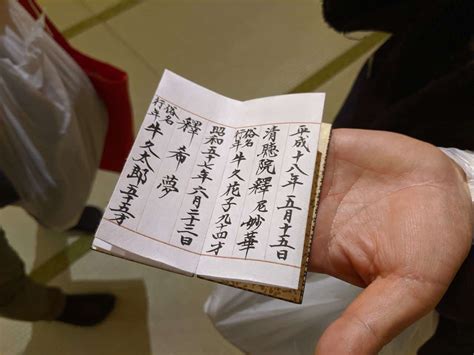 平成十八年 五月十五日
清聴院釋尼妙華
俗名
行年 牛久花子 九十四才
昭和五十七年 六月二十三日
釋 希夢
俗名
行年 牛久太郎 五十五才